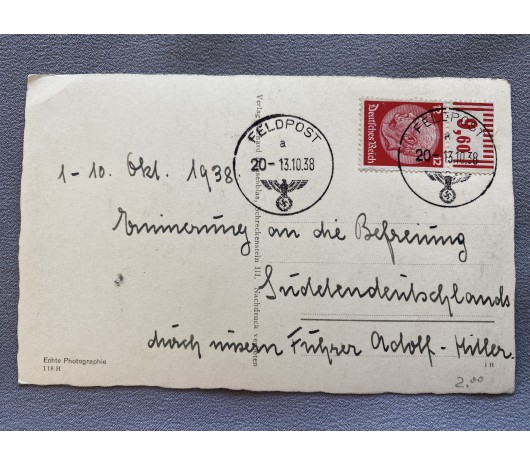 FELDPOST
a
20 - 13.10.38
Deutsches Reich
12
9,60
FELDPOST
a
20 - 13.10.38
1-10. Okt. 1938.
Erinnerung an die Befreiung
Sudetendeutschlands
durch unsern Führer Adolf-Hitler.
Schreckenstein III. Nachdruck verboten
Echte Photographie
118 H
2.00